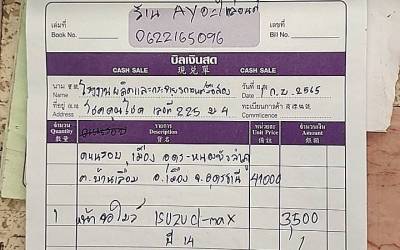 ร้าน AYอะไหล่ยนต์
เล่มที่
Book No.
0622165096
เลขที่
Bill No.
บิลเงินสด
CASH SALE 現兌單 CASH SALE
นาม 寶號 โรงงานผลิตและกระจาย
Name
วันที่ ก.ย. 2565
Date
ที่อยู่ 住址 โชคคูนโชค เลขที่ 225 ม 4
Address
ทะเบียนการค้า 商德偏號
Commicence
จำนวน รายการ หน่วยละ จำนวนเงิน
Quantity Description Unit Price Amount
數量 貨名 備註 銀額
ถนนรอบเมือง อุดร-หนองบัวลำภู
ต.บ้านเลื่อม อ.เมือง จ.อุดรธานี 41000
1 หน้า ISUZU D-max 3500
ปี 14